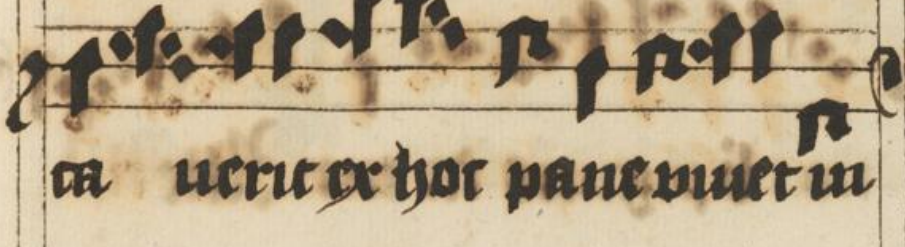 ca uerit ex hoc pane viuet in